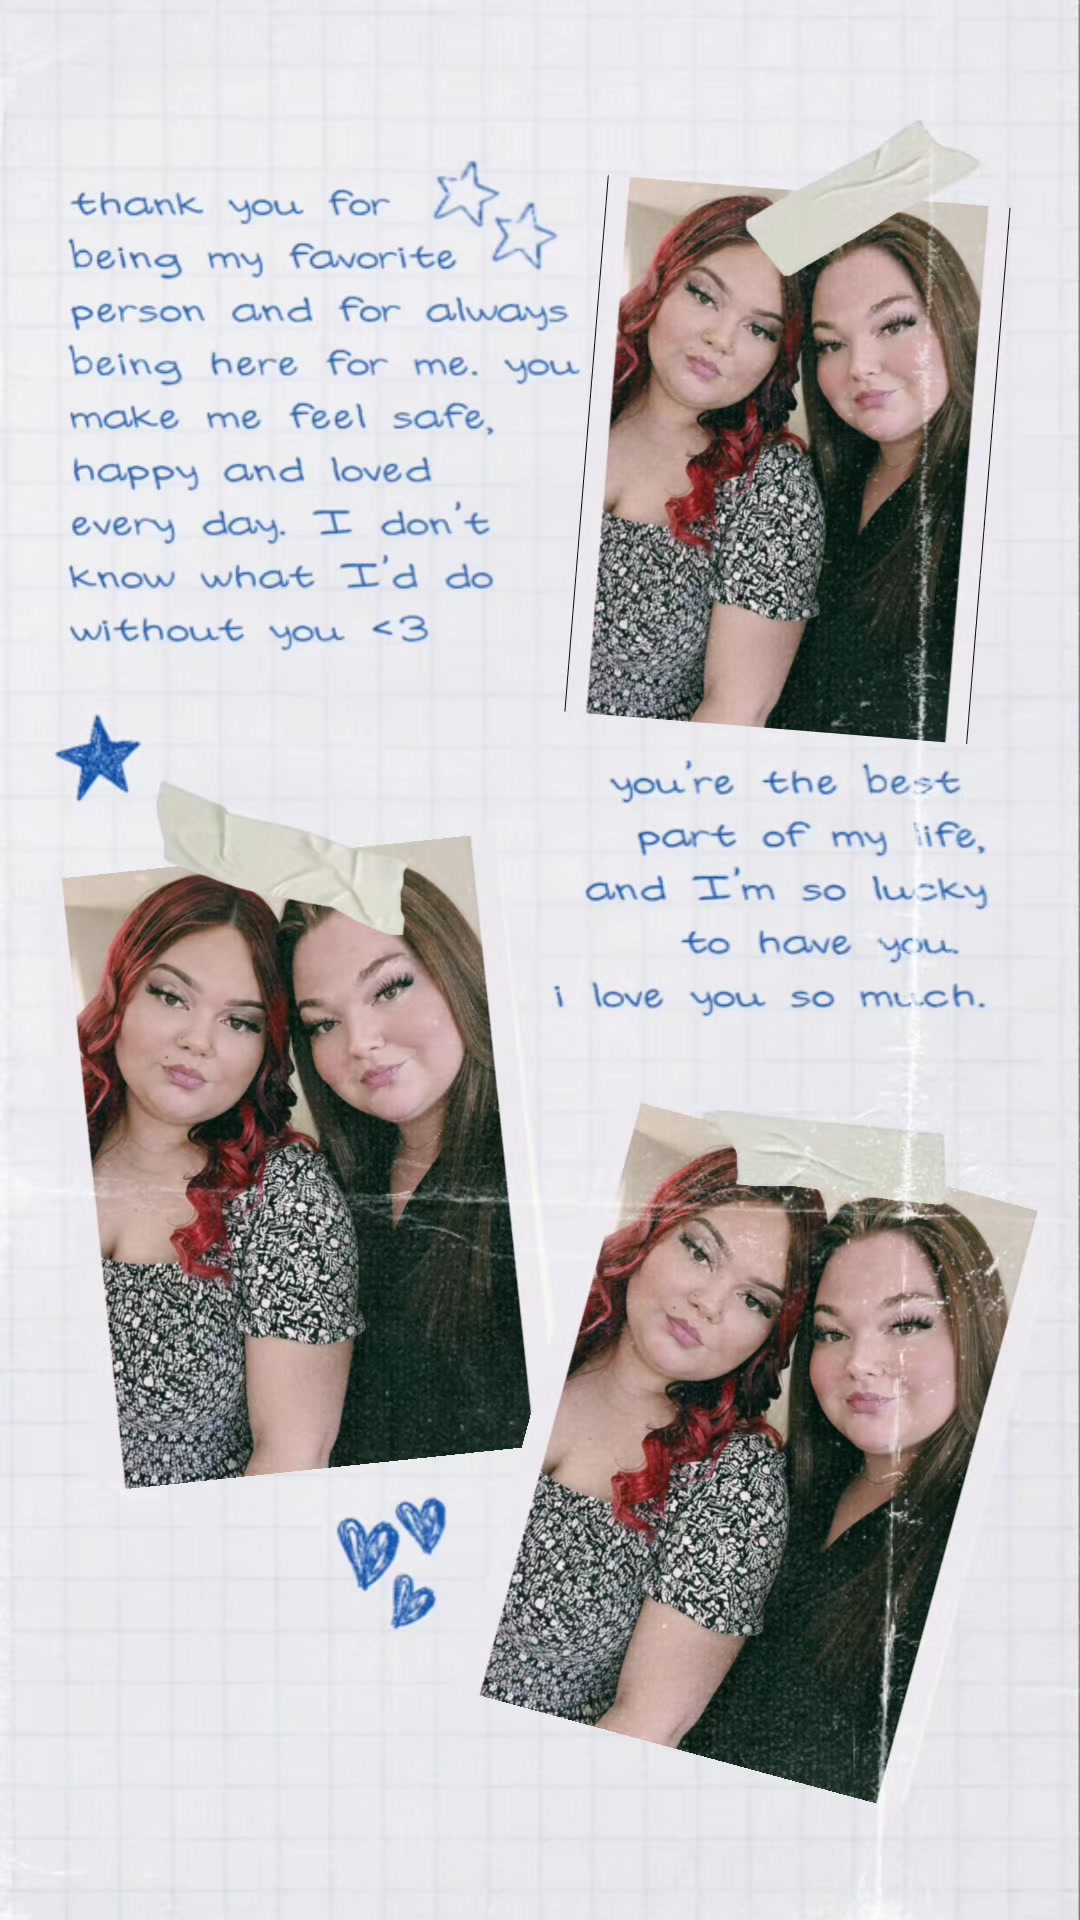 thank you for
being my favorite
person and for always
being here for me. you
make me feel safe,
happy and loved
every day. I don't
know what I'd do
without you <3
you're the best
part of my life,
and I'm so lucky
to have you.
i love you so much.